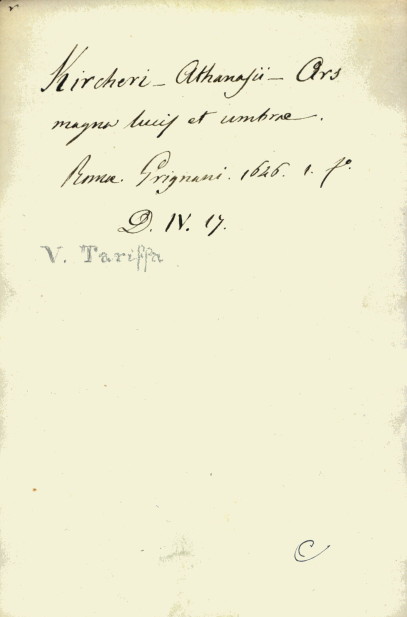 Kircheri - Athanasii - Ars
magna lucis et umbrae.
Romae. Grignani. 1646. 1. fº.
D. IV. 17.
V. Tariffa
C